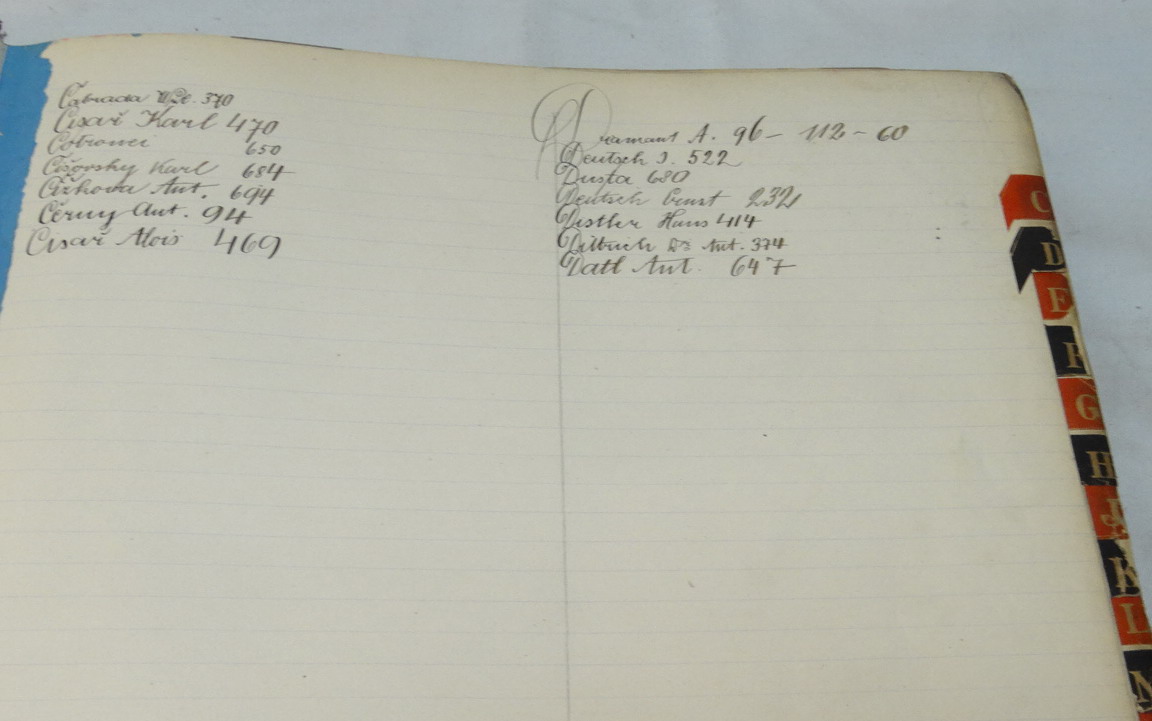 Čabrada 370
Cisař Karl 470
Cotronei 650
Čižovsky Karl 684
Čižkova Ant. 694
Černy Ant. 94
Cisař Alois 469
Diamant A. 96 - 112 - 60
Deutsch J. 522
Dusta 680
Deutsch Ernst 232
Distler Hans 414
Dittrich Dr Ant. 374
Datl Ant. 647
C
D
E
F
G
H
K
L
N